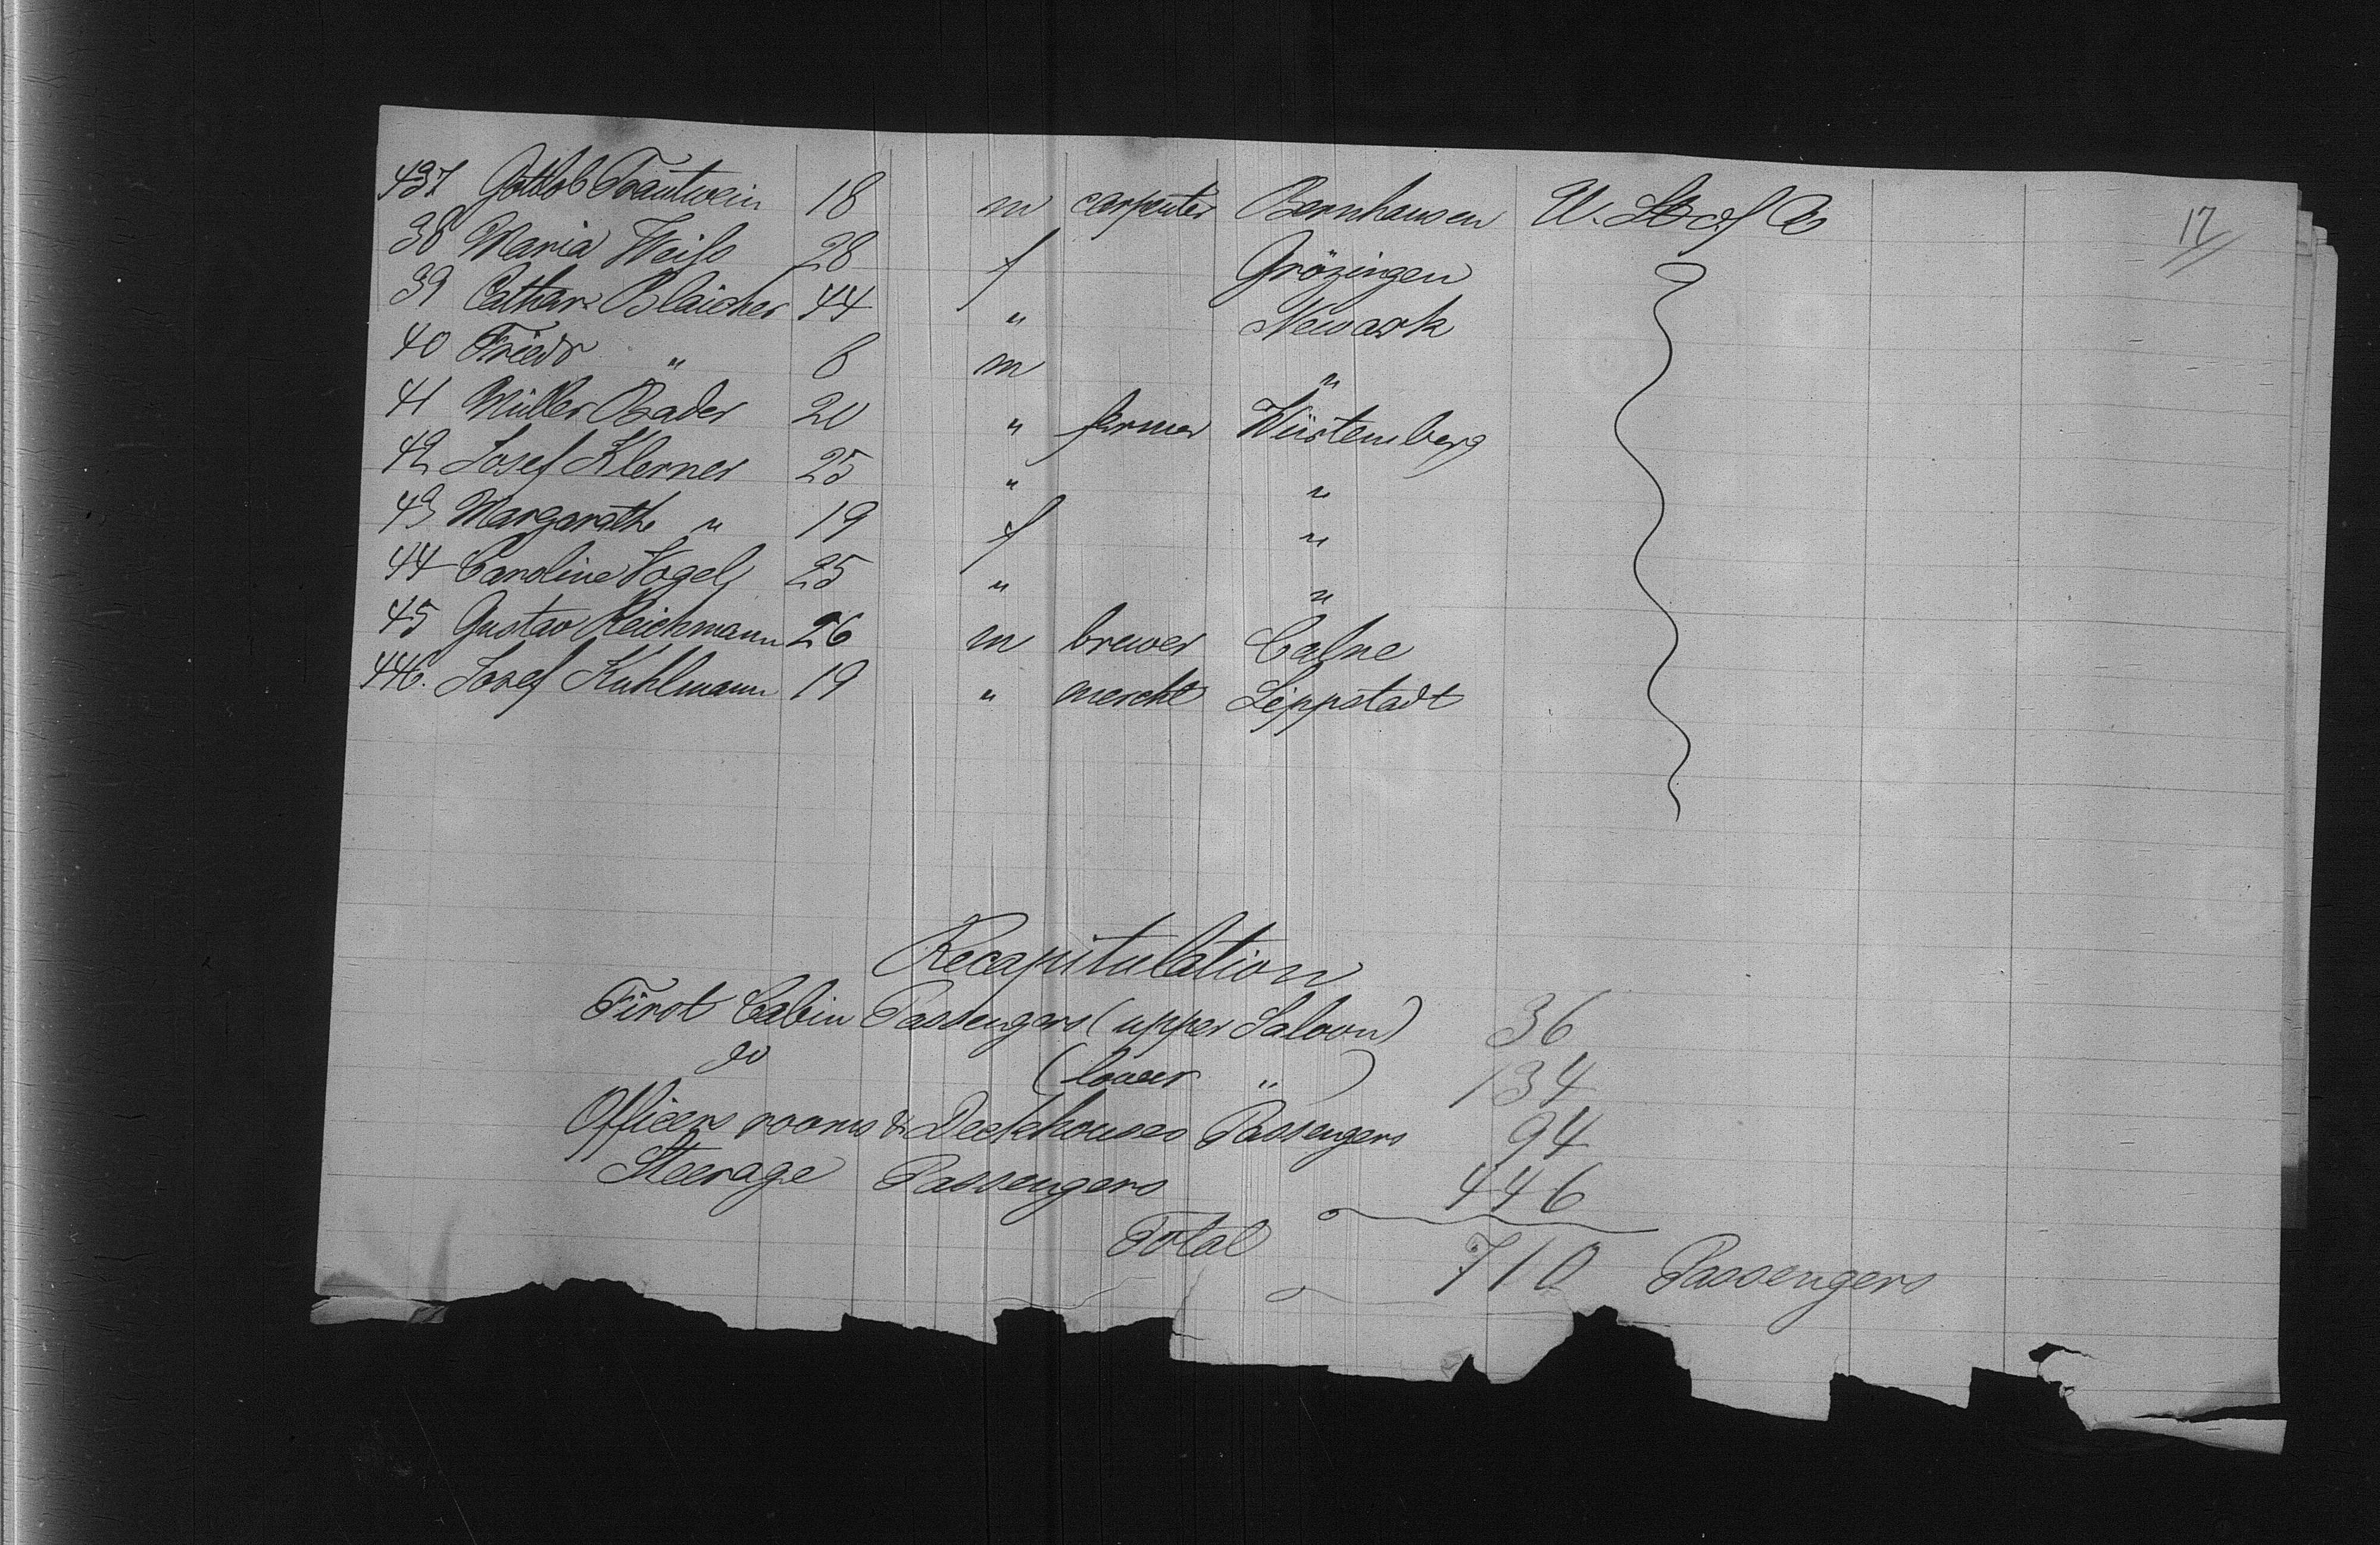 17
437 Gottlob Trautwein 18 m carpenter Bernhausen U. St. of A
38 Maria Weiss 28 f Grözingen
39 Cathar. Blaicher 44 " Newark
40 Friedr " 8 m "
41 Müller Bader 20 " farmer Würtemberg
42 Josef Klerner 25 " "
43 Margarathe " 19 f "
44 Caroline Vogel 25 " "
45 Gustav Reichmann 26 m brewer
446. Josef Kuhlmann 19 " mercht Lippstadt
Recapitulation
First Cabin Passengers (upper Saloon) 36
do (lower " ) 134
Officers rooms & Deckhouses Passengers 94
Steerage Passengers 446
Total 710 Passengers